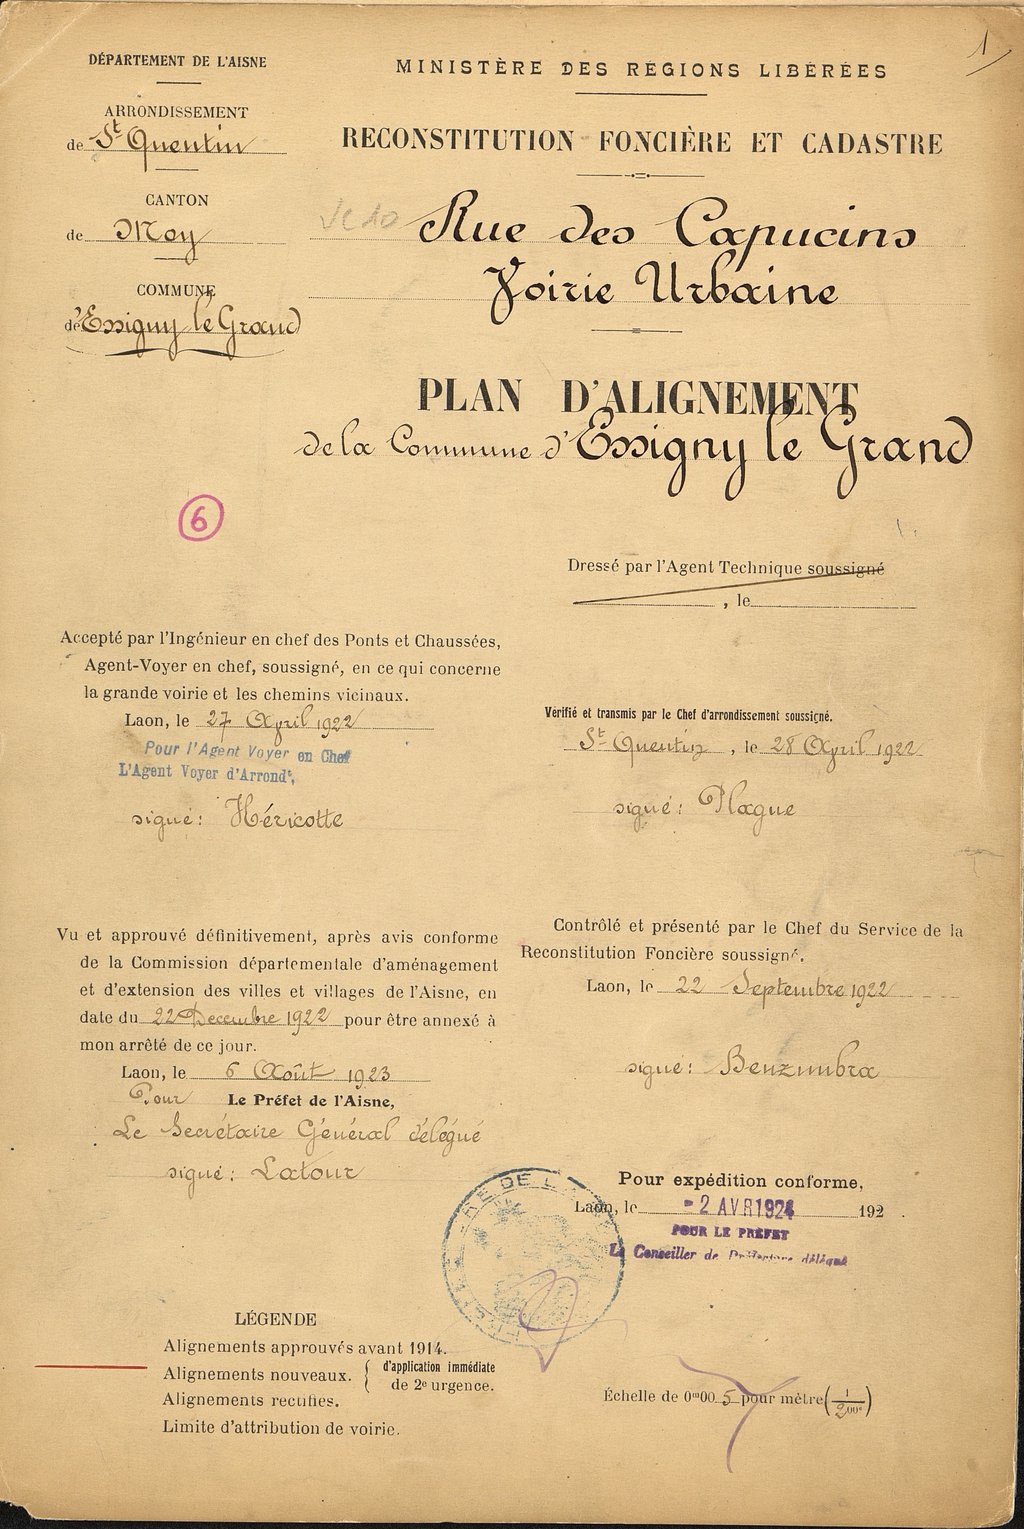 1
DÉPARTEMENT DE L'AISNE
ARRONDISSEMENT
de St Quentin
CANTON
de Moy
COMMUNE
d'Essigny le Grand
MINISTÈRE DES RÉGIONS LIBÉRÉES
RECONSTITUTION FONCIÈRE ET CADASTRE
Vc 10 Rue des Capucins
Voirie Urbaine
PLAN D'ALIGNEMENT
de la Commune d'Essigny le Grand
6
Dressé par l'Agent Technique soussigné
, le
Accepté par l'Ingénieur en chef des Ponts et Chaussées,
Agent-Voyer en chef, soussigné, en ce qui concerne
la grande voirie et les chemins vicinaux.
Laon, le 27 Avril 1922
Pour l'Agent Voyer en Chef
L'Agent Voyer d'Arrondt,
signé: Héricotte
Vérifié et transmis par le Chef d'arrondissement soussigné.
St Quentin, le 28 Avril 1922
signé: Plague
Vu et approuvé définitivement, après avis conforme
de la Commission départementale d'aménagement
et d'extension des villes et villages de l'Aisne, en
date du 22 Décembre 1922 pour être annexé à
mon arrêté de ce jour.
Laon, le 6 Août 1923
Pour Le Préfet de l'Aisne,
Le Secrétaire Général délégué
signé: Latour
Contrôlé et présenté par le Chef du Service de la
Reconstitution Foncière soussigné.
Laon, le 22 Septembre 1922
signé: Benzimbra
Pour expédition conforme,
Laon, le -2 AVR 1924 192
POUR LE PRÉFET
Le Conseiller de Préfecture délégué
LÉGENDE
Alignements approuvés avant 1914.
Alignements nouveaux. { d'application immédiate
de 2e urgence.
Alignements rectifiés.
Limite d'attribution de voirie.
Échelle de 0m005 pour mètre (1/200e)